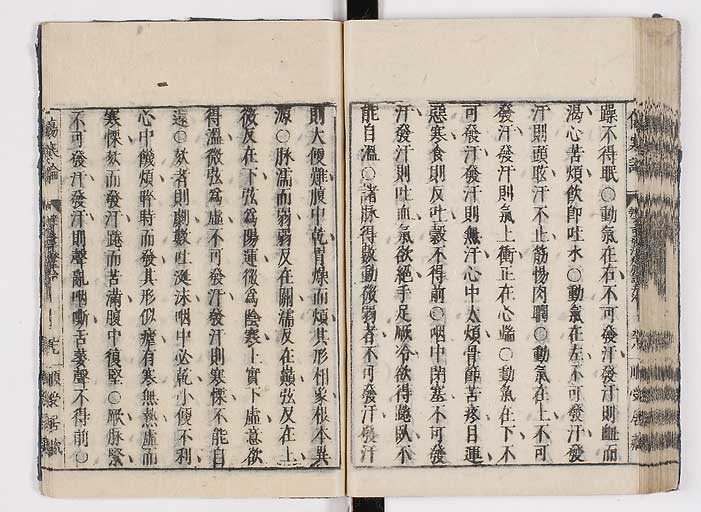 躁不得眠○動氣在右不可發汗發汗則衄而
渴心苦煩飲即吐水○動氣在左不可發汗發
汗則頭眩汗不止筋惕肉瞤○動氣在上不可
發汗發汗則氣上衝正在心端○動氣在下不
可發汗發汗則無汗心中大煩骨節苦疼目運
惡寒食則反吐穀不得前○咽中閉塞不可發
汗發汗則吐血氣欲絕手足厥冷欲得踡臥不
能自溫○諸脉得數動微弱者不可發汗發汗
則大便難腹中乾胃燥而煩其形相象根本異
源○脉濡而弱弱反在關濡反在巔弦反在上
微反在下弦為陽運微為陰寒上實下虛意欲
得溫微弦為虛不可發汗發汗則寒慄不能自
還○欬者則劇數吐涎沫咽中必乾小便不利
心中饑煩晬時而發其形似瘧有寒無熱虛而
寒慄欬而發汗踡而苦滿腹中復堅○厥脉緊
不可發汗發汗則聲亂咽嘶舌萎聲不得前○
傷寒論